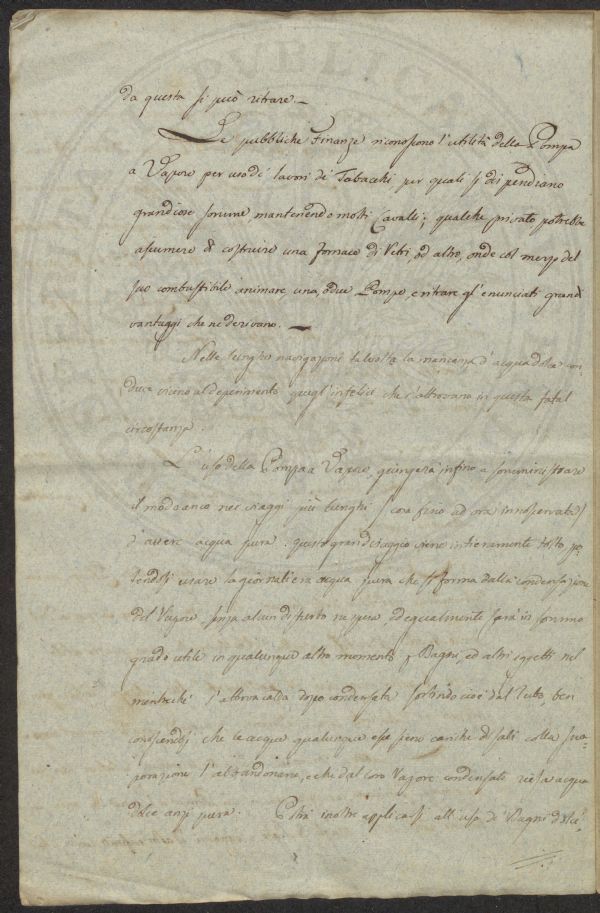 da questa si può ritrare.
Le pubbliche Finanze riconoscono l'utilità della Pompa
a Vapore per uso de' lavori de' Tabacchi per quali si dispendiano
grandiose somme, mantenendo molti Cavalli; qualche privato potrebbe
assumere di costruire una fornace di Vetri, od altro, onde col mezzo del
suo combustibile animare una, o due Pompe, e ritrare gl'enunciati grandi
vantaggi che ne derivano.
Nelle lunghe navigazioni talvolta la mancanza d'acqua dolce con-
duce vicino al deperimento quegl'infelici che s'attrovano in questa fatal
circostanza.
L'uso della Pompa a Vapore, giungerà infino a somministrare
il modo anco nei viaggi più lunghi (cosa fino ad ora innosservata)
d'avere acqua pura. questo grand viene intieramente tolto po-
tendosi usare la giornaliera acqua pura che si forma dalla condensazione
del Vapore senza alcun disturbo ne spesa, ed egualmente sarà in sommo
grado utile in qualunque altro momento, Bagni, ed altri oggetti nel
mentrechè l'attrova calda dopo condensata sortindo cioè dal Tubo, ben
conoscendosi che le acque qualunque esse sieno cariche di sali colla sva-
porazione l'abbandonano, e che dal loro Vapore condensato riesce acqua
dolce anzi pura. Potrà inoltre applicarsi all'uso de' Bagni dolci,